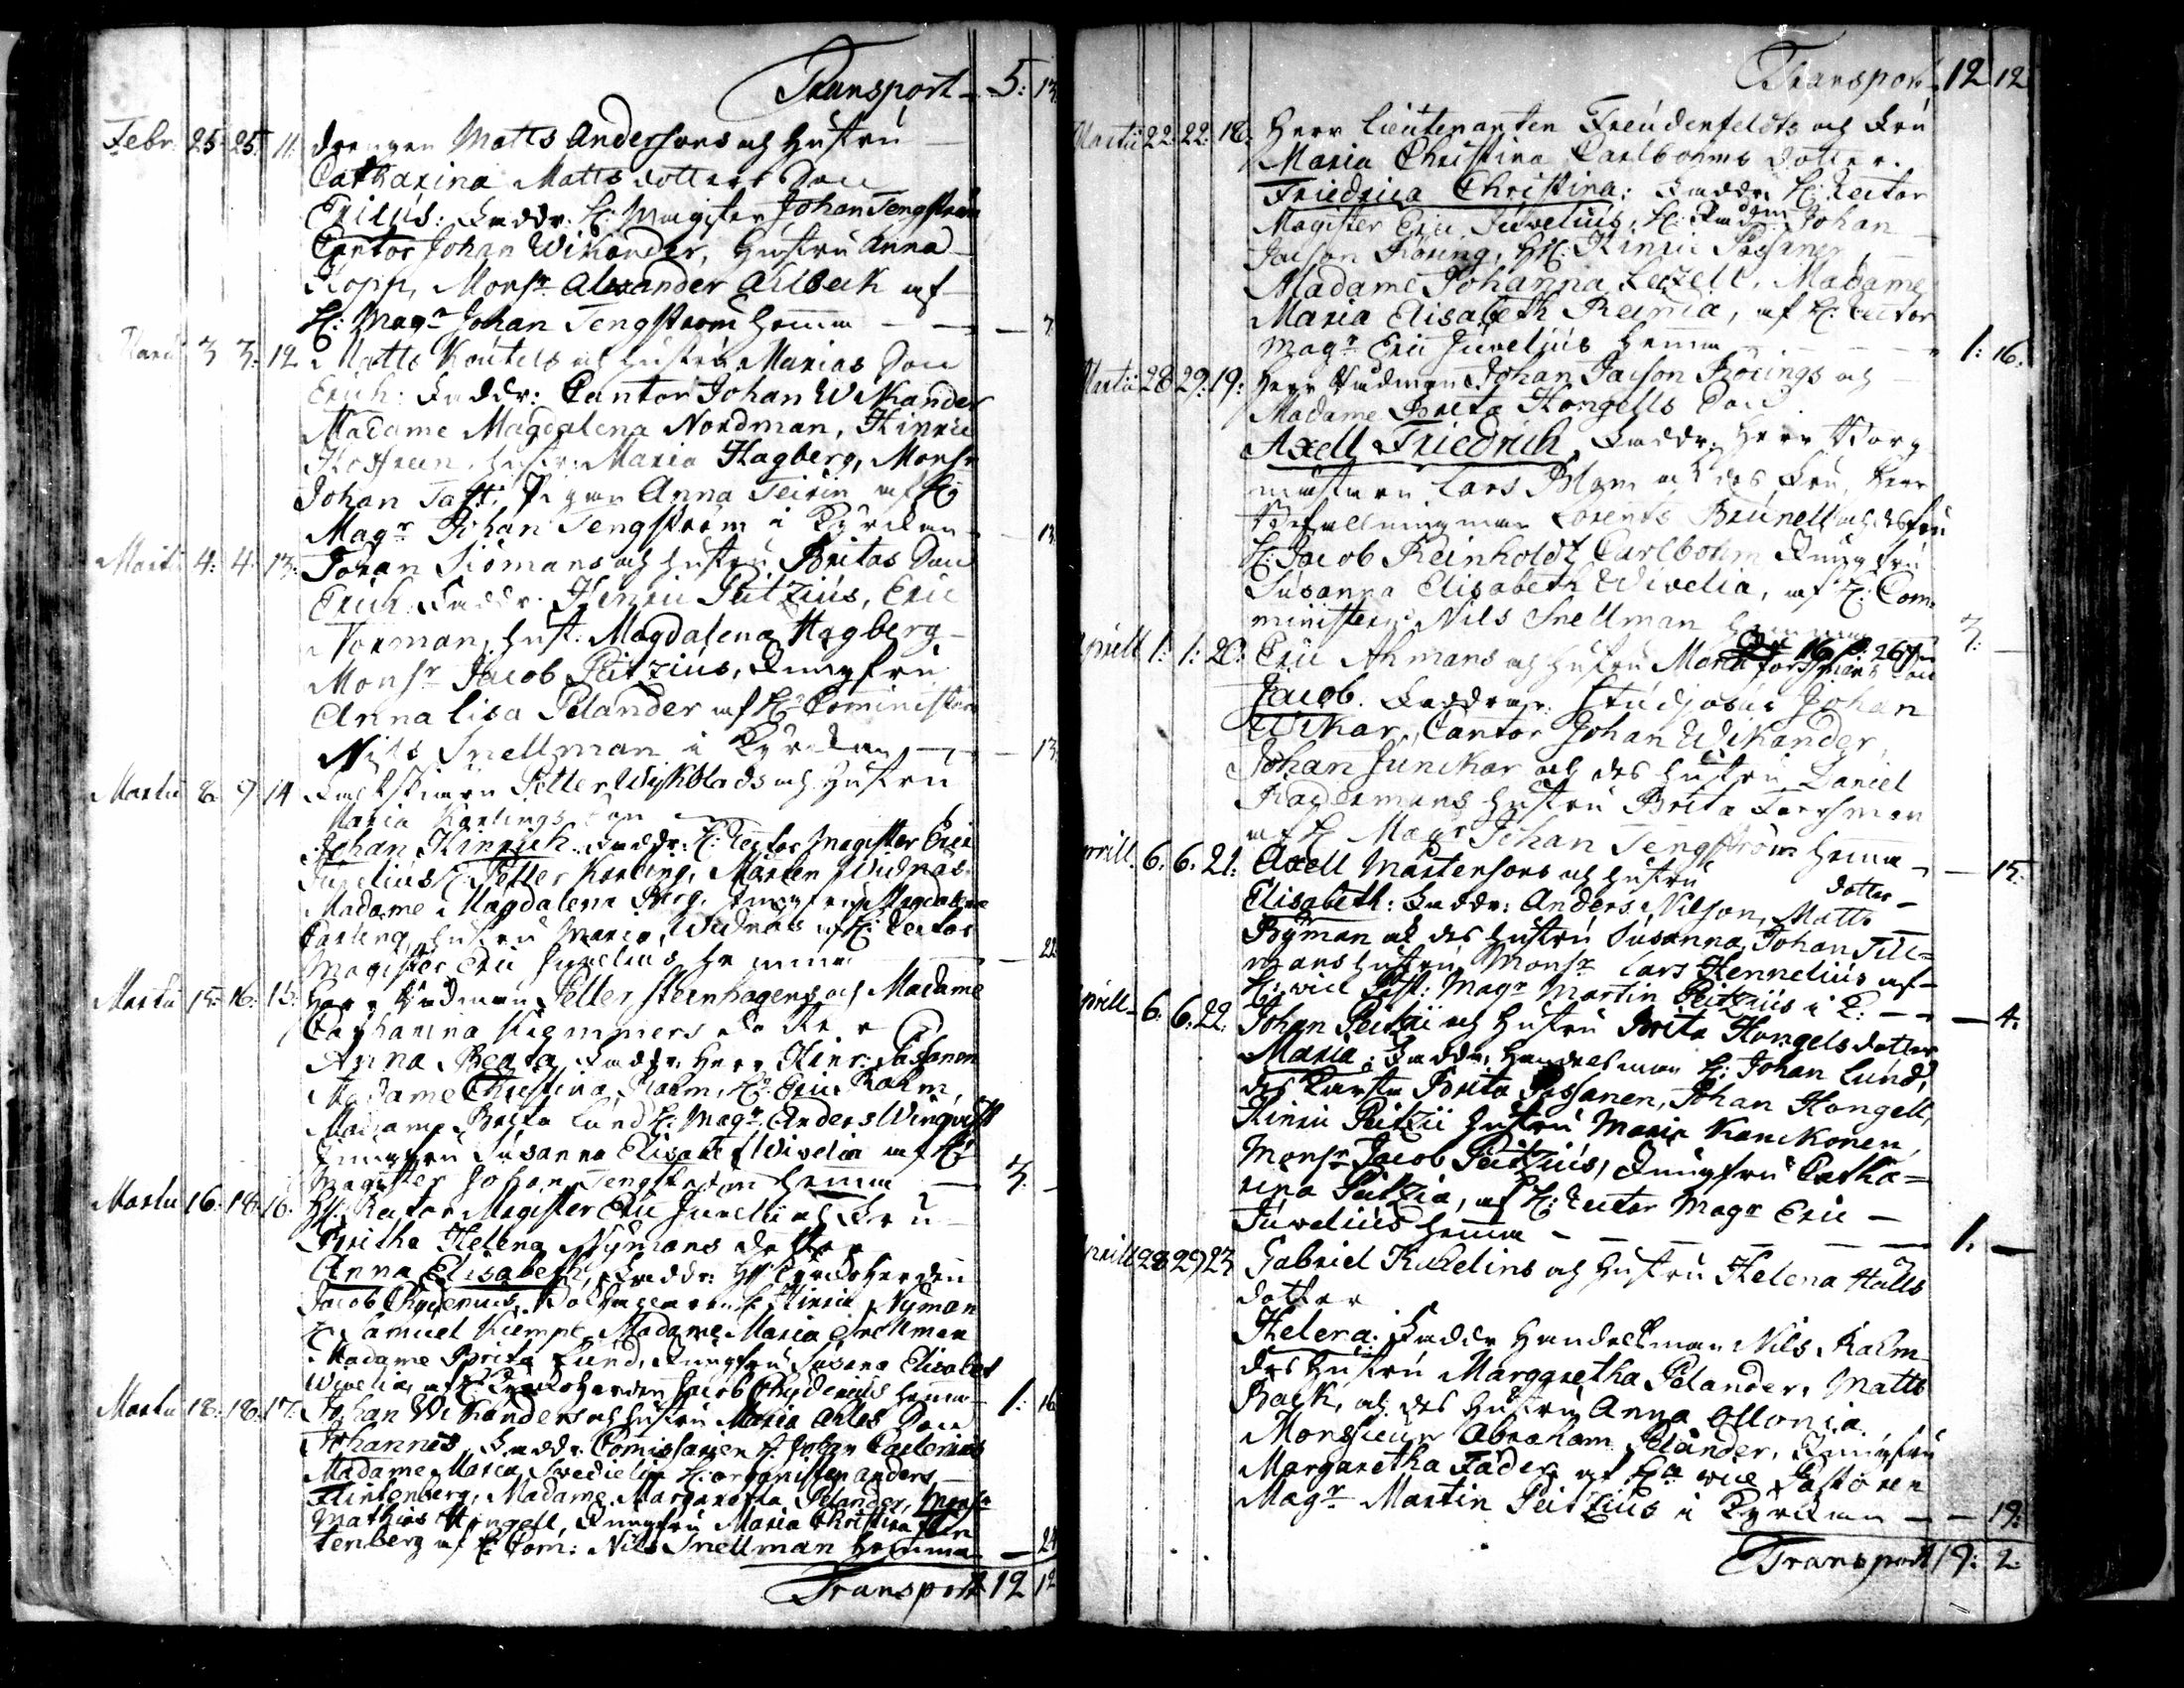 Transport 5: 13
Febr. 25 25 11. drengen Matts Anderssons och hustru
Catharina Matts dotters Son
Ericus: Faddr: H: Magister Johan Tengström
Cantor Johan Wikander, hustru Anna
Kopp, Mons:r Alexander Ailbeck af
H: Mag:r Johan Tengström hemma 7.
3 3: 12 Matts och hustru Marias Son
Erich: Faddr: Cantor Johan Wikander
Madame Magdalena Nordman, Hinric
hustr: Maria Hagberg, Mons:r
Johan Tast, Pigan Anna Teirin af H:
Mag:r Johan Tengström i Kyrckan 13.
Martii 4: 4: 13: Johan Siömans och hustru Britas Son
Erich Faddr: Hinric Peitzius, Eric
Norman, hust: Magdalena Hagberg
Mons:r Jacob Peitzius, Jungfru
Anna Lisa Pelander af H:r Comministern
Nils Snellman i Kyrckan 13.
Martii 8 9 14 Petter Wijkblads och hustru
Maria Karlings Son
Johan Hinrich. Faddr: H: Rector Magister Eric
Juvelius H: Petter Karling, Mårten Widnäs
Madame Magdalena Berg, Jungfru Magdalena
Carling, hustru Maria Widnäs af H: Rector
Magister Eric Juvelius hemma 22.
Martii 15: 16: 15: Herr Rådman Petter Steenhagens och Madame
Catharina Kiemmers dotter
Anna Beata Faddr: Herr Hinr: Passanen
Madame Christina Kahm, H:r Eric Kahm,
Madame Brita Lund H: Mag:r Anders Winqvist
Jungfru Susanna Elisabet Wivelia af H:
Magister Johan Tengström hemma 3.
Martii 16. 18. 16. H:r Rector Magister Eric Juvelii och Fru
Britha Helena Nymans dotter
Anna Elisabeth, Faddr: H:r Kyrckoherden
Jacob Chydenius, Hinric Nyman
H: Samuel Kiempe, Madame Maria Snellman
Madame Brita Lund, Jungfru Susana Elisabet
Wivelia, af H: Kyrckoherden Jacob Chydenius hemma 1: 16
Martii 18: 18: 17: Johan Wikanders och hustru Maria Son
Johannes, Faddr: Comissarien H: Johan Carlenius
Madame Maria Svedielin H: organisten Anders
Flintenberg, Madame Margaretha Pelander, Mons:r
Mathias Hongell, Jungfru Maria Christina Flin
tenberg af H: Com: Nils Snellman hemma 24
Transport 12 12
Transport 12 12
Martii 22: 22: 18: Herr Lieutenanten Freudenfeldts och Fru
Maria Christina Carlbohms dotter.
Friedrica Christina: Faddr: H: Rector
Magister Eric Juvelius, H: Rådm: Johan
Jacson Roering, H: Hinric Passanen
Madame Johanna Lezell, Madame
Maria Elisabeth Reinia, af H: Rector
Mag:r Eric Juvelius hemma 1: 16.
Martii 28 29: 19: Herr Rådman Johan Jacson Roerings och
Madame Brita Hongells Son
Axell Friedrich, Faddr: Herr Borg
mästaren Lars Blom och des Fru, Herr
Befallningsman Lorents Brunell och des fru
H: Jacob Reinholdt Carlbohm Jungfru
Susanna Elisabeth Wivelia, af H: Com-
ministern Nils Snellman hemma 3:
Aprill 1: 1: 20: Eric Åhmans och hustru Maria Forssmans Son
Jacob. Faddrar: Studjosus Johan
Wikar, Cantor Johan Wikander,
Johan Junckar och des hustru, Daniel
hustru Brita Forsman
af H: Mag:r Johan Tengström hemma 15.
Aprill. 6. 6. 21. Axell Mårtensons och hustru
dotter
Elisabeth: Faddr: Anders Nilson, Matts
Byman och des hustru Susanna, Johan Till=
mans hustru Mons:r Lars Hennelius af
H: vice Past: Mag:r Martin Peitzius i K: 4.
Aprill 6. 6. 22: Johan Peitzii och hustru Brita Hongels dotter
Maria: Faddr: Handelsman H: Johan Lund,
des Kiersta Brita Passanen, Johan Hongell,
Hinric Peitzii hustru Maria Kanckonen,
Mons:r Jacob Peitzius, Jungfru Catha=
rina Peitzia, af H: Rector Mag:r Eric
Juvelius hemma 1.
Aprill 28 29 23 Gabriel Kukelins och hustru Helena Halls
dotter
Helena: Faddr Handelsman Nils Kahm
des hustru Margaretha Pelander, Matts
Back, och des hustru Anna Allonia
Monsieur Abraham Pelander, Jungfru
Margaretha Fader, af H:r vice Pastoren
Mag:r Martin Peitzius i Kyrckan 19:
Transport 19: 2: